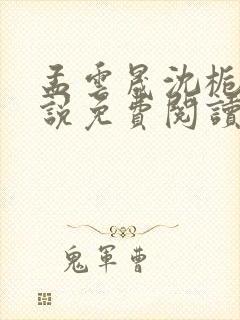 孟雲晟沈梔
說免費閱讀
鬼軍曹